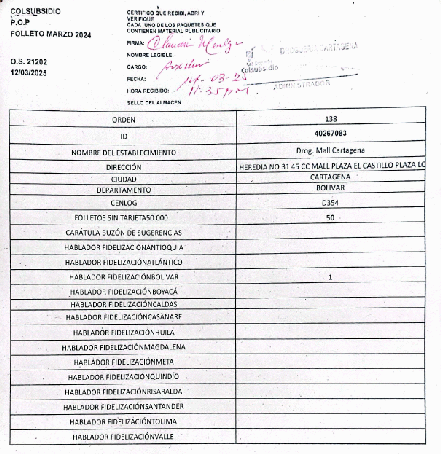 COLSUBSIDIO
P.O.P
FOLLETO MARZO 2024
O.S. 21202
12/03/2025
CERTIFICO QUE RECIBI, ABRI Y
VERIFIQUE
CADA UNO DE LOS PAQUETES QUE
CONTIENEN MATERIAL PUBLICITARIO
FIRMA:
NOMBRE LEGIBLE
CARGO:
FECHA:
HORA RECIBIDO:
SELLO DEL ALMACEN
DROGUERIA CARTAGENA
Colsubsidio
ADMINISTRADOR
ORDEN 138
ID 40267083
NOMBRE DEL ESTABLECIMIENTO Drog. Mall Cartagena
DIRECCIÓN HEREDIA NO 31 45 CC MALL PLAZA EL CASTILLO PLAZA LO
CIUDAD CARTAGENA
DEPARTAMENTO BOLIVAR
CENLOG D354
FOLLETOS SIN TARJETAS 50
CARÁTULA BUZÓN DE SUGERENCIAS
HABLADOR FIDELIZACIÓNANTIOQUIA
HABLADOR FIDELIZACIÓNATLÁNTICO
HABLADOR FIDELIZACIÓNBOLIVAR 1
HABLADOR FIDELIZACIÓNBOYACÁ
HABLADOR FIDELIZACIÓNCALDAS
HABLADOR FIDELIZACIÓNCASANARE
HABLADOR FIDELIZACIÓNHUILA
HABLADOR FIDELIZACIÓNMAGDALENA
HABLADOR FIDELIZACIÓNMETA
HABLADOR FIDELIZACIÓNQUINDÍO
HABLADOR FIDELIZACIÓNRISARALDA
HABLADOR FIDELIZACIÓNSANTANDER
HABLADOR FIDELIZACIÓNTOLIMA
HABLADOR FIDELIZACIÓNVALLE